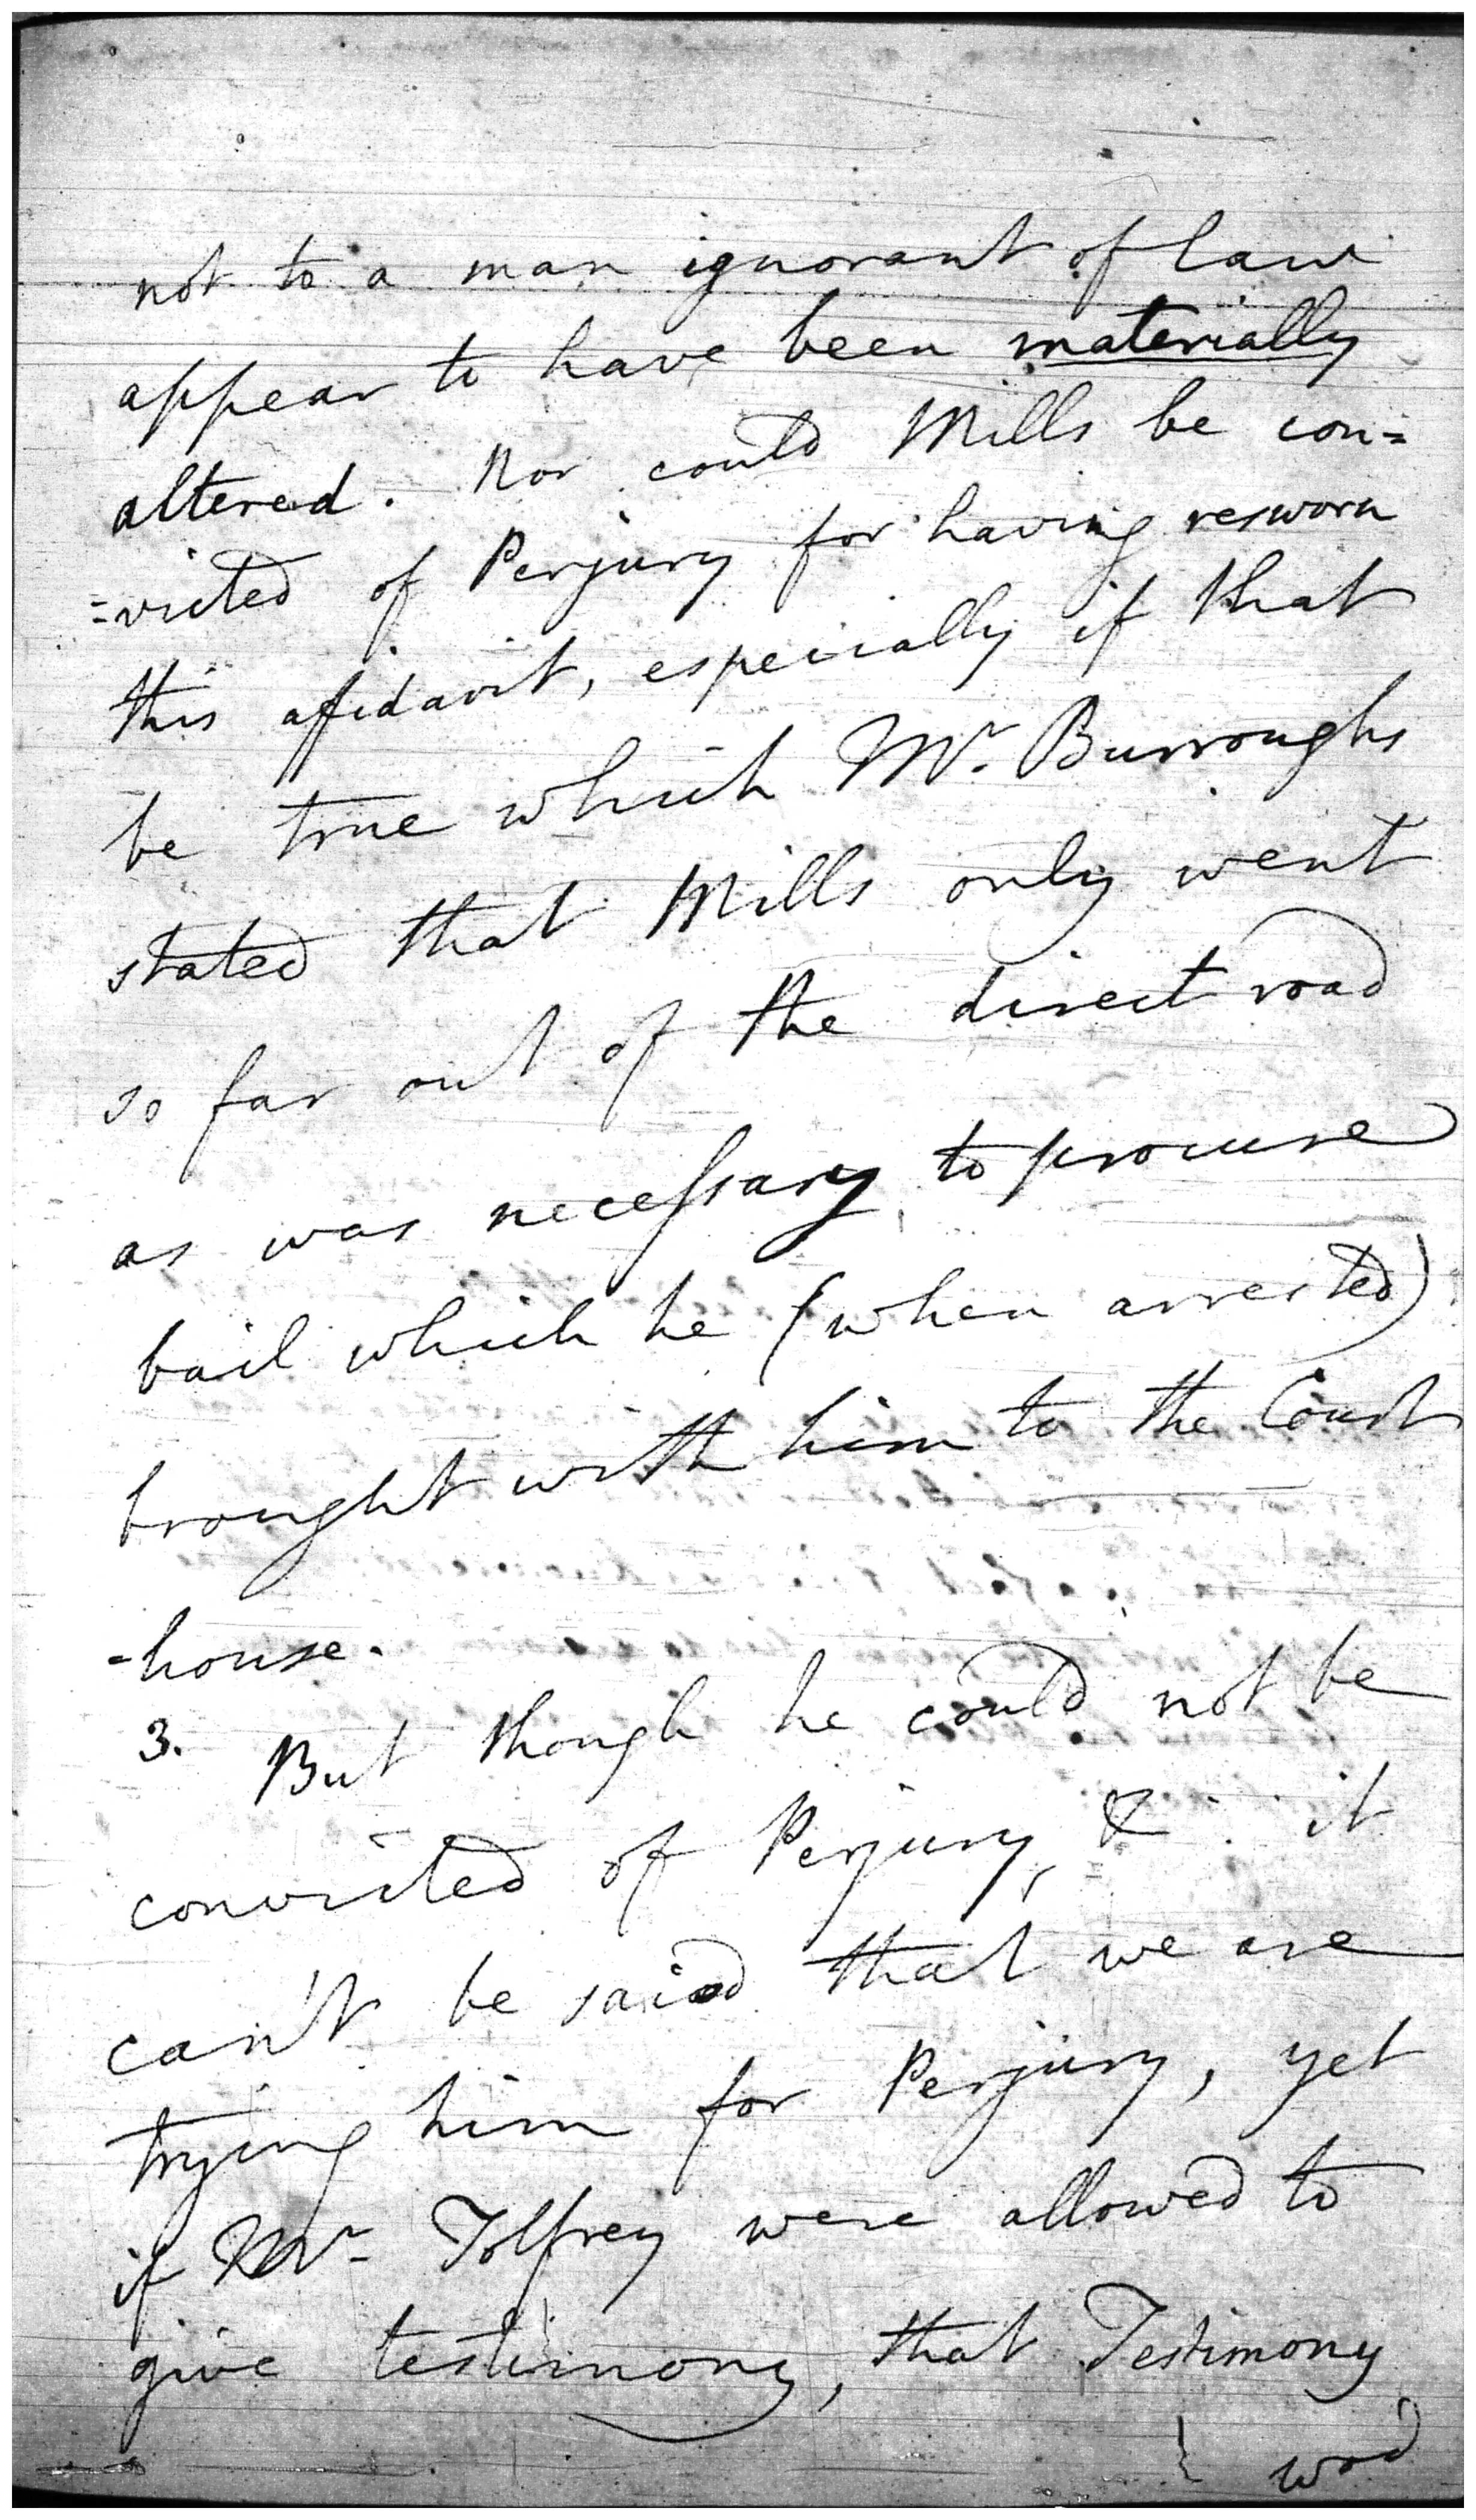 not to a man ignorant of law
appear to have been materially
altered. Nor could Mills be con=
=victed of Perjury for having resworn
this afidavit, especially if that
be true which Mr. Burroughs
stated that Mills only went
so far out of the direct road
as was necessary to procure
bail which he (when arrested)
brought with him to the Court
-house.
3. But though he could not be
convicted of Perjury, & it
can't be said that we are
trying him for Perjury, yet
if Mr Tolfrey were allowed to
give testimony, that Testimony
wod